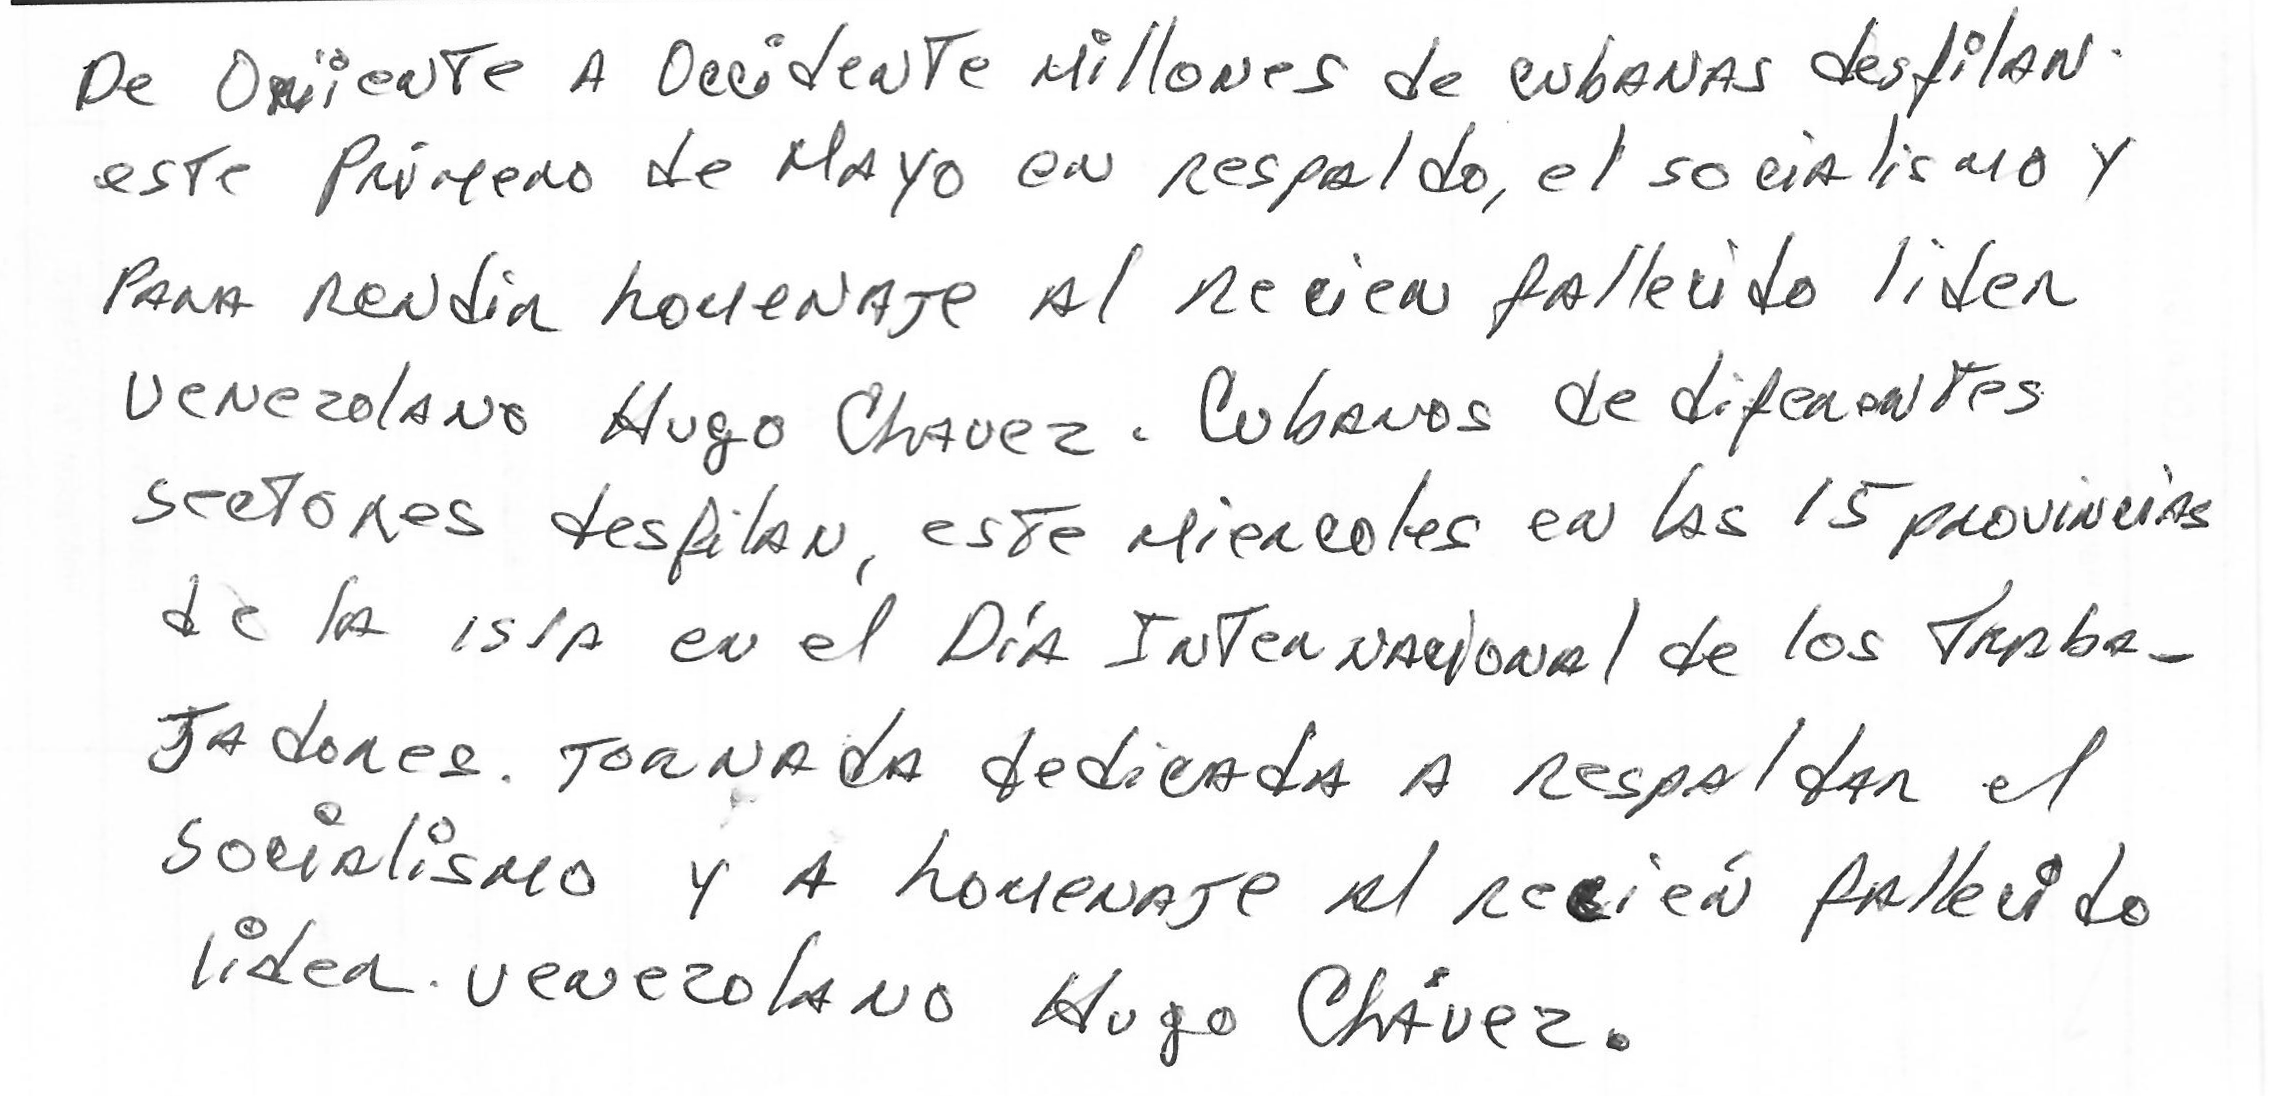 De Oriiente A Occidente Millones de cubanas desfilan.
este Primero de Mayo en respaldo, el socialismo y
Para rendir homenaje al recien fallecido lider
venezolano Hugo Chavez. Cubanos de diferentes
sectores desfilan, este miercoles en las 15 provincias
de la isla en el Día Internacional de los Traba-
jadores. Jornada dedicada a respaldar el
socialismo y a homenaje al recién fallecido
lider. venezolano Hugo Chávez.